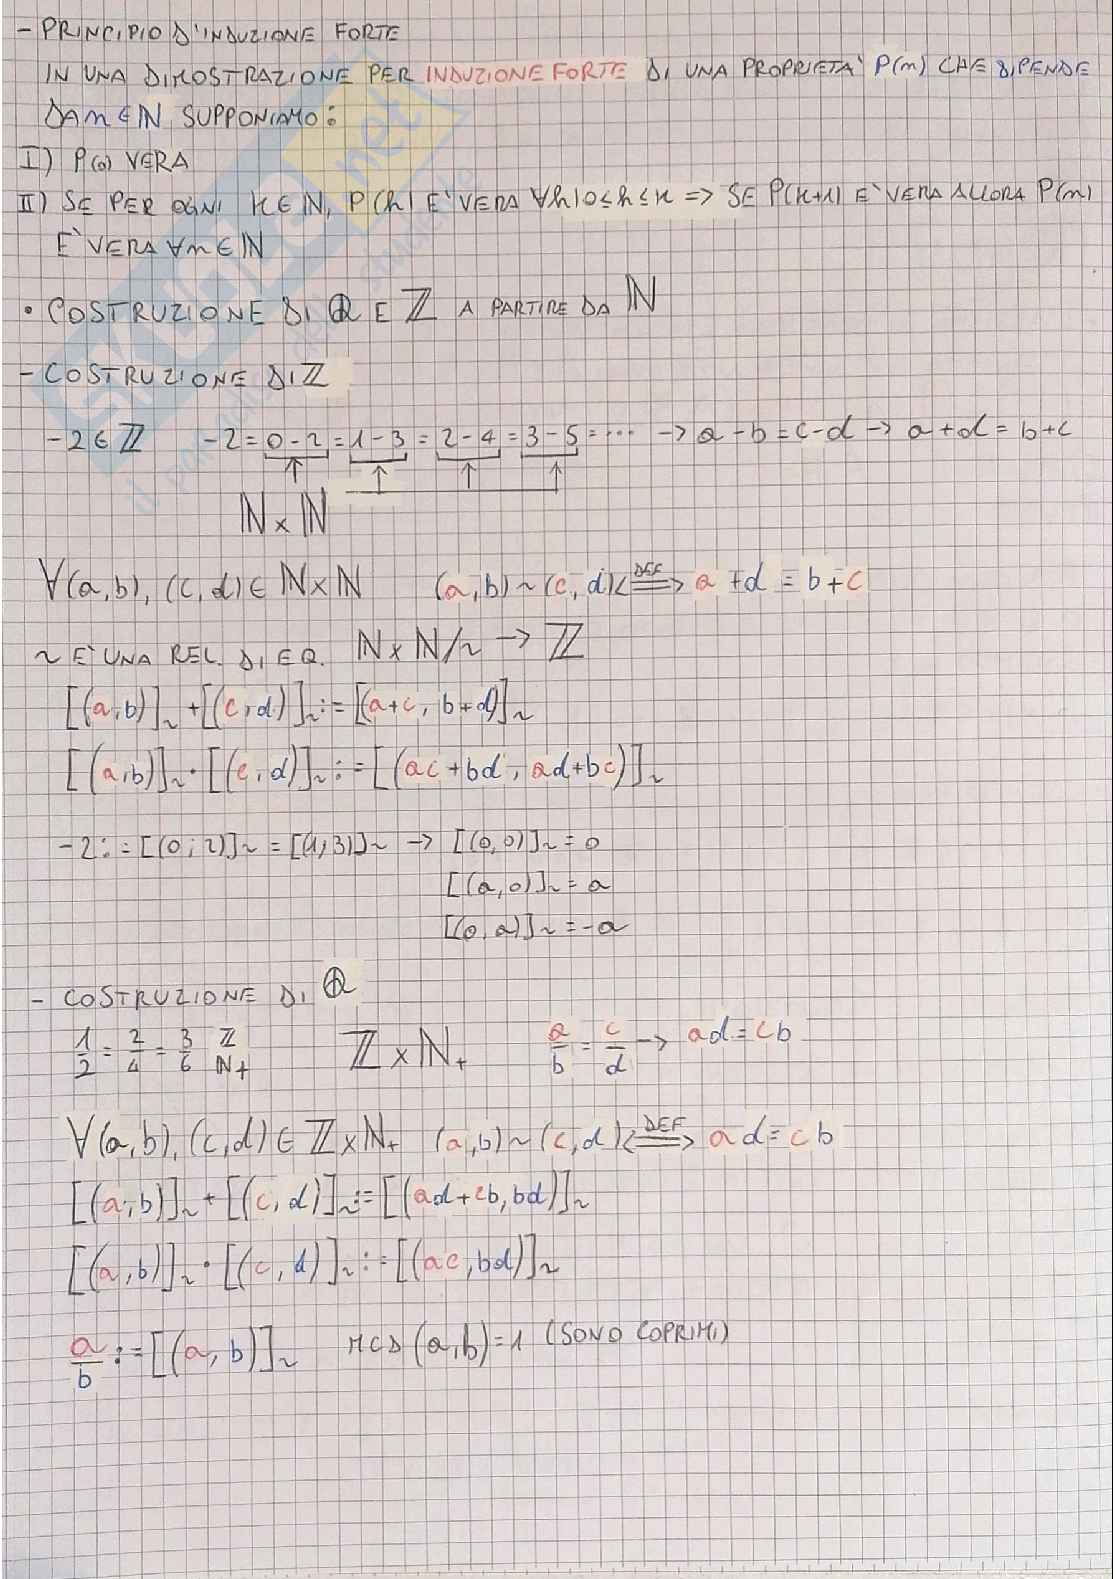 - PRINCIPIO D'INDUZIONE FORTE
IN UNA DIMOSTRAZIONE PER INDUZIONE FORTE DI UNA PROPRIETA' P(m) CHE DIPENDE
DA m ∈ ℕ SUPPONIAMO:
I) P(0) VERA
II) SE PER OGNI K ∈ ℕ, P(h) E' VERA ∀h | 0 ≤ h ≤ K => SE P(K+1) E' VERA ALLORA P(m)
E' VERA ∀m ∈ ℕ
• COSTRUZIONE DI ℚ E ℤ A PARTIRE DA ℕ
- COSTRUZIONE DI ℤ
-2 ∈ ℤ -2 = 0-2 = 1-3 = 2-4 = 3-5 = ... → a-b = c-d → a+d = b+c
↑ ↑ ↑ ↑
ℕ × ℕ
∀(a,b), (c,d) ∈ ℕ×ℕ (a,b) ~ (c,d) <=DEF=> a+d = b+c
~ E' UNA REL. DI EQ. ℕ×ℕ/~ → ℤ
[(a,b)]~ + [(c,d)]~ := [(a+c, b+d)]~
[(a,b)]~ · [(c,d)]~ := [(ac+bd, ad+bc)]~
-2 := [(0;2)]~ = [(1,3)]~ → [(0,0)]~ = 0
[(a,0)]~ = a
[(0,a)]~ = -a
- COSTRUZIONE DI ℚ
1/2 = 2/4 = 3/6 ℤ/ℕ+ ℤ × ℕ+ a/b = c/d → ad = cb
∀(a,b), (c,d) ∈ ℤ×ℕ+ (a,b) ~ (c,d) <=DEF=> ad = cb
[(a,b)]~ + [(c,d)]~ := [(ad+cb, bd)]~
[(a,b)]~ · [(c,d)]~ := [(ac, bd)]~
a/b := [(a,b)]~ MCD (a,b) = 1 (SONO COPRIMI)
SKUOLA.net